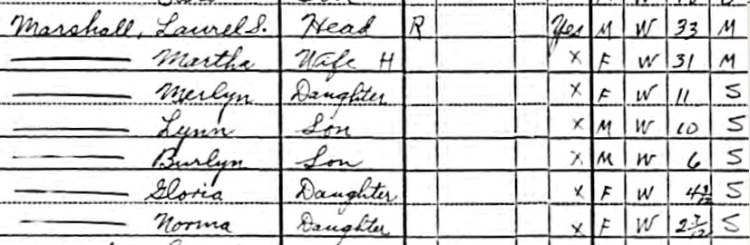 Marshall, Laurel S. Head R Yes M W 33 M
Martha Wife H X F W 31 M
Merlyn Daughter X F W 11 S
Lynn Son X M W 10 S
Burlyn Son X M W 6 S
Gloria Daughter X F W S
Norma Daughter X F W S